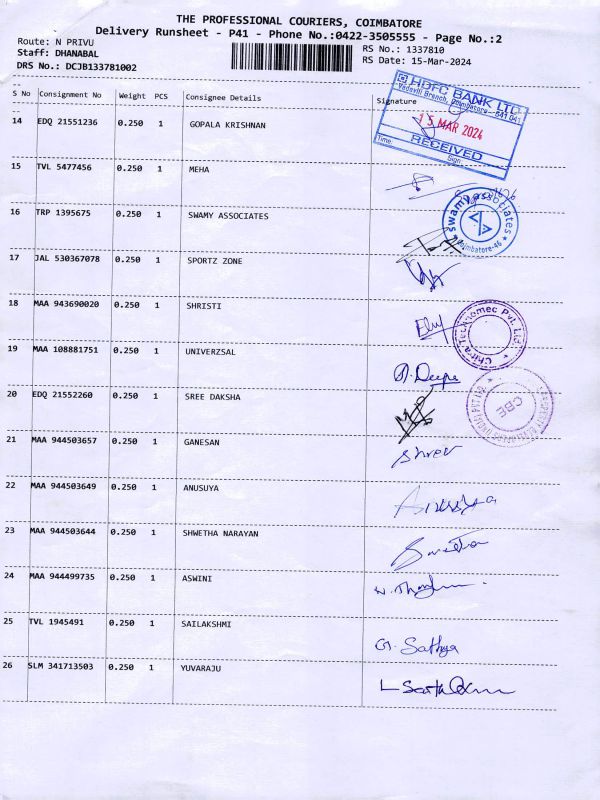 THE PROFESSIONAL COURIERS, COIMBATORE
Delivery Runsheet - P41 - Phone No.:0422-3505555 - Page No.:2
Route: N PRIVU
RS No.: 1337810
Staff: DHANABAL
RS Date: 15-Mar-2024
DRS No.: DCJB133781002
S No Consignment No Weight PCS Consignee Details Signature
HDFC BANK LTD
15 MAR 2024
RECEIVED
Time Sign
14 EDQ 21551236 0.250 1 GOPALA KRISHNAN
15 TVL 5477456 0.250 1 MEHA
16 TRP 1395675 0.250 1 SWAMY ASSOCIATES
swamy associates
Coimbatore-46
17 JAL 530367078 0.250 1 SPORTZ ZONE
18 MAA 943690020 0.250 1 SHRISTI
Chitra Technomec Pvt. Ltd
19 MAA 108881751 0.250 1 UNIVERZSAL
D. Deepa
20 EDQ 21552260 0.250 1 SREE DAKSHA
CBE
21 MAA 944503657 0.250 1 GANESAN
22 MAA 944503649 0.250 1 ANUSUYA
Anusuya
23 MAA 944503644 0.250 1 SHWETHA NARAYAN
Swetha
24 MAA 944499735 0.250 1 ASWINI
25 TVL 1945491 0.250 1 SAILAKSHMI
G. Sathya
26 SLM 341713503 0.250 1 YUVARAJU